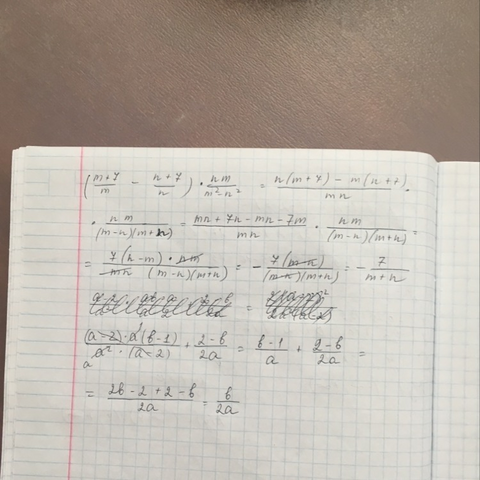 (m+7/m − n+7/n) · nm/m²−n² = n(m+7) − m(n+7)/mn ·
· nm/(m−n)(m+n) = mn+7n−mn−7m/mn · nm/(m−n)(m+n) =
= 7(n−m) · nm/mn (m−n)(m+n) = − 7(m−n)/(m−n)(m+n) = − 7/m+n
(a−2) · a(b−1)/a² · (a−2) + 2−b/2a = b−1/a + 2−b/2a =
= 2b−2+2−b/2a = b/2a